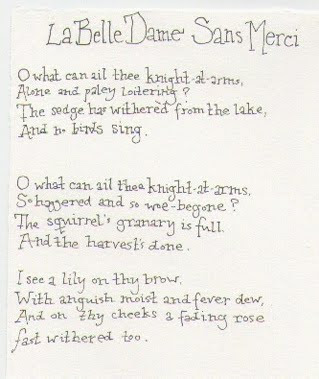 La Belle Dame Sans Merci
O what can ail thee knight-at-arms,
Alone and paley loitering?
The sedge has withered from the lake,
And no birds sing.
O what can ail thee knight-at-arms,
So haggered and so woe-begone?
The squirrel's granary is full.
And the harvest's done.
I see a lily on thy brow,
With anguish moist and fever dew,
And on thy cheeks a fading rose
fast withered too.